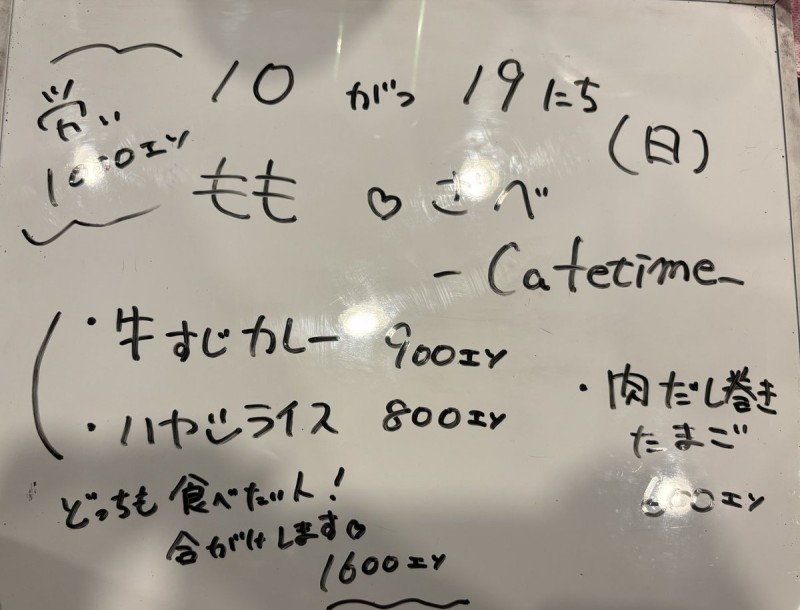 10がつ19にち(日)
1000エン
もも♡さべ
-Cafetime-
・牛すじカレー 900エン
・ハヤシライス 800エン
・肉だし巻き
たまご
600エン
どっちも食べたい人!
合がけします♡
1600エン